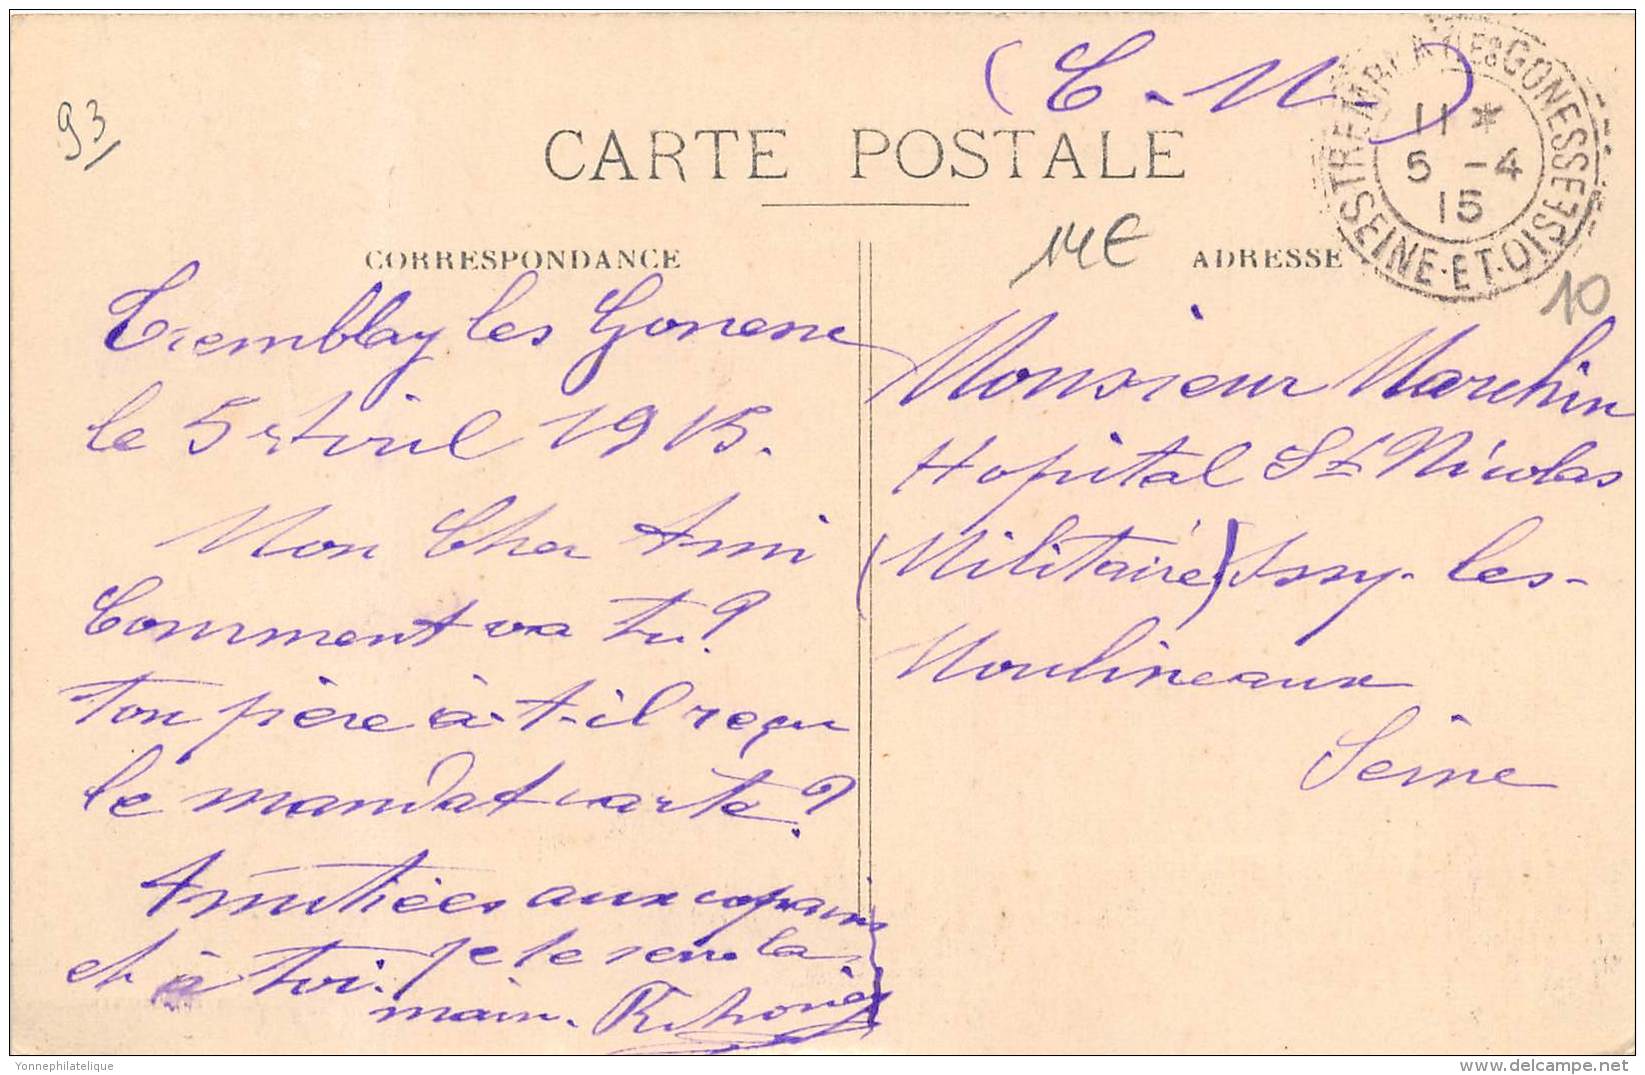 93
(C. M)
CARTE POSTALE
TREMBLAY-LES-GONESSE
11 *
5 -4
15
SEINE-ET-OISE
14€
10
CORRESPONDANCE
Tremblay les Gonesse
le 5 Avril 1915.
Mon Cher Ami
Comment va tu?
ton père à-t-il reçu
le mandat carte?
Amitiées aux copains
et à toi. je te serre la
main.
ADRESSE
Monsieur Marchin
Hopital St Nicolas
(Militaire) Issy-les-
Moulineaux
Seine
Yonnephilatelique
delcampe.net